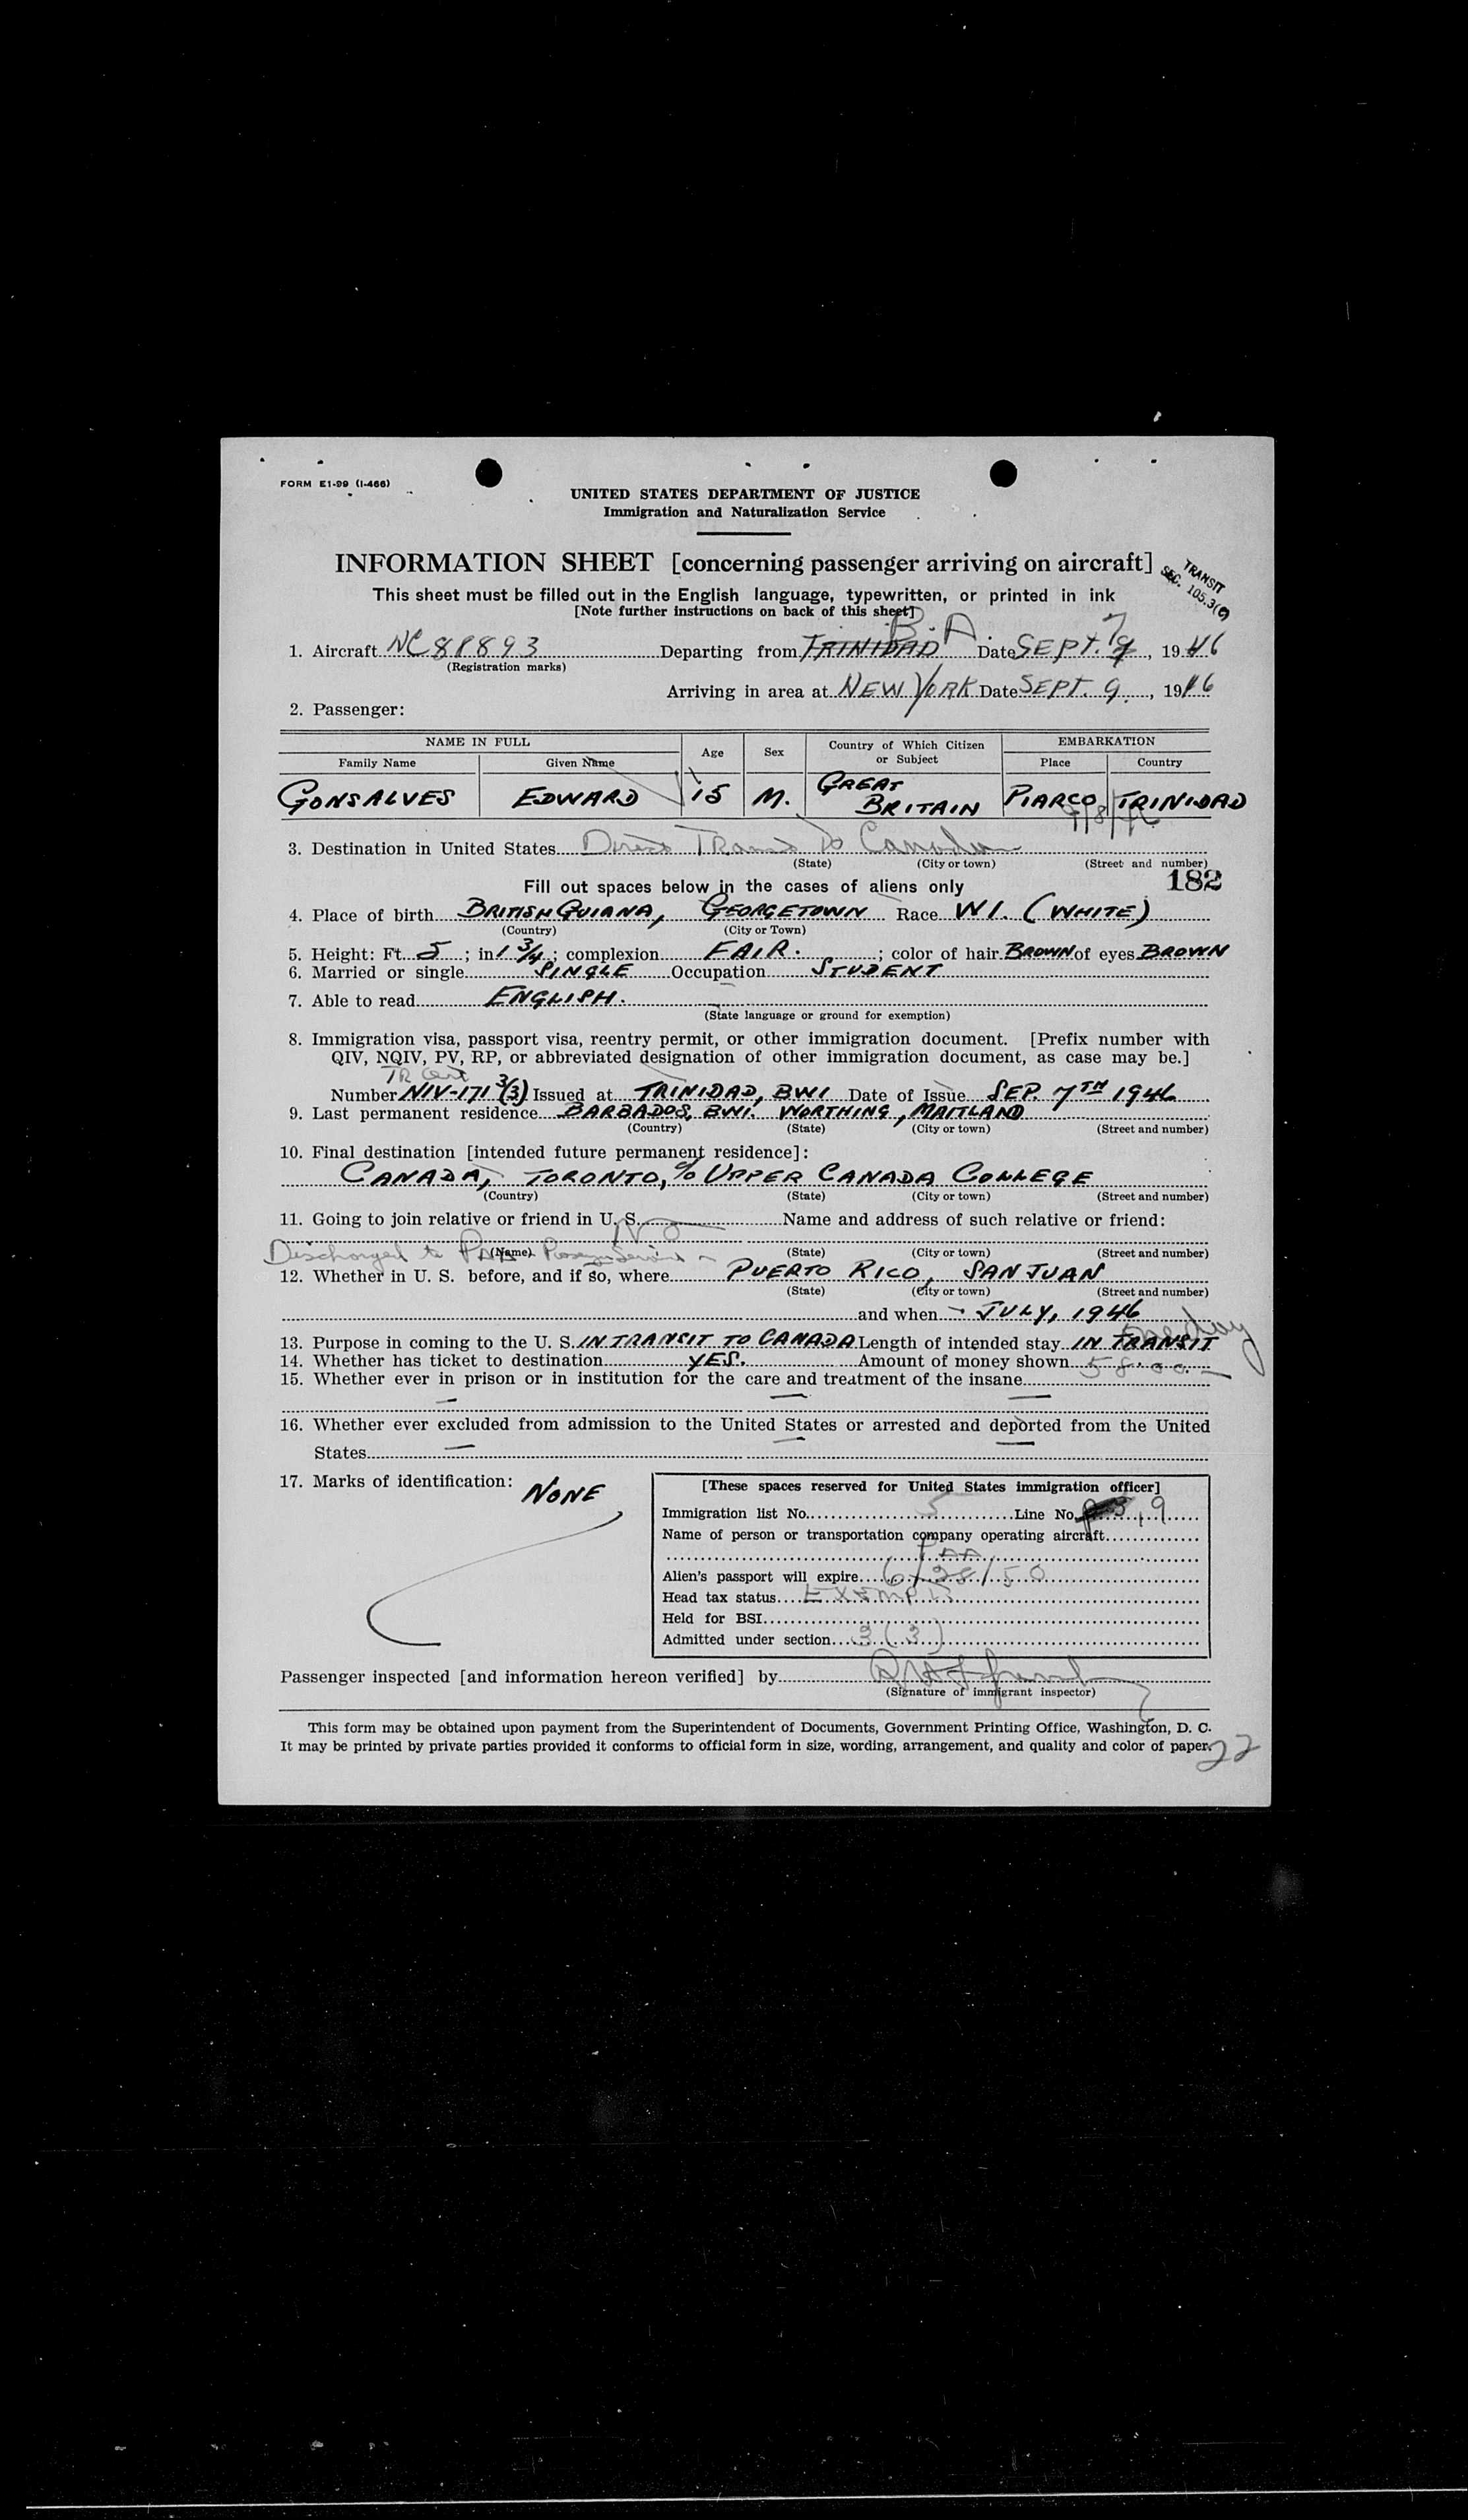 FORM E1-99 (I-466)
UNITED STATES DEPARTMENT OF JUSTICE
Immigration and Naturalization Service
INFORMATION SHEET [concerning passenger arriving on aircraft]
TRANSIT
SEC. 105.3(e)
This sheet must be filled out in the English language, typewritten, or printed in ink
[Note further instructions on back of this sheet]
B.A.
1. Aircraft NC 88893 Departing from TRINIDAD Date SEPT. 7, 1946
(Registration marks)
Arriving in area at NEW YORK Date SEPT. 9, 1946
2. Passenger:
NAME IN FULL Age Sex Country of Which Citizen or Subject EMBARKATION
Family Name Given Name Place Country
GONSALVES EDWARD 15 M. GREAT BRITAIN PIARCO TRINIDAD
9/8/46
3. Destination in United States Direct Trans to Canada
(State) (City or town) (Street and number)
182
Fill out spaces below in the cases of aliens only
4. Place of birth BRITISH GUIANA, GEORGETOWN Race W.I. (WHITE)
(Country) (City or Town)
5. Height: Ft. 5; in 1 3/4; complexion FAIR.; color of hair BROWN of eyes BROWN
6. Married or single SINGLE Occupation STUDENT
7. Able to read ENGLISH.
(State language or ground for exemption)
8. Immigration visa, passport visa, reentry permit, or other immigration document. [Prefix number with
QIV, NQIV, PV, RP, or abbreviated designation of other immigration document, as case may be.]
TR Cert
Number NIV-171 3(3) Issued at TRINIDAD, BWI Date of Issue SEP. 7TH 1946
9. Last permanent residence BARBADOS, BWI. WORTHING, MAITLAND
(Country) (State) (City or town) (Street and number)
10. Final destination [intended future permanent residence]:
CANADA, TORONTO, c/o UPPER CANADA COLLEGE
(Country) (State) (City or town) (Street and number)
11. Going to join relative or friend in U. S. NO Name and address of such relative or friend:
Discharged to
(Name) (State) (City or town) (Street and number)
12. Whether in U. S. before, and if so, where PUERTO RICO, SAN JUAN
(State) (City or town) (Street and number)
and when - JULY, 1946
one day
13. Purpose in coming to the U. S. IN TRANSIT TO CANADA Length of intended stay IN TRANSIT
14. Whether has ticket to destination YES. Amount of money shown 58.00
15. Whether ever in prison or in institution for the care and treatment of the insane
— — —
16. Whether ever excluded from admission to the United States or arrested and deported from the United
States — — —
17. Marks of identification: NONE
[These spaces reserved for United States immigration officer]
Immigration list No. 5 Line No. 9
Name of person or transportation company operating aircraft
PAA
Alien's passport will expire 6/28/50
Head tax status EXEMPT
Held for BSI
Admitted under section 3(3)
Passenger inspected [and information hereon verified] by
(Signature of immigrant inspector)
This form may be obtained upon payment from the Superintendent of Documents, Government Printing Office, Washington, D. C.
It may be printed by private parties provided it conforms to official form in size, wording, arrangement, and quality and color of paper.
22